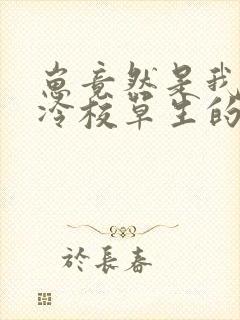 崽竟然是我
冷校草生的
於長春